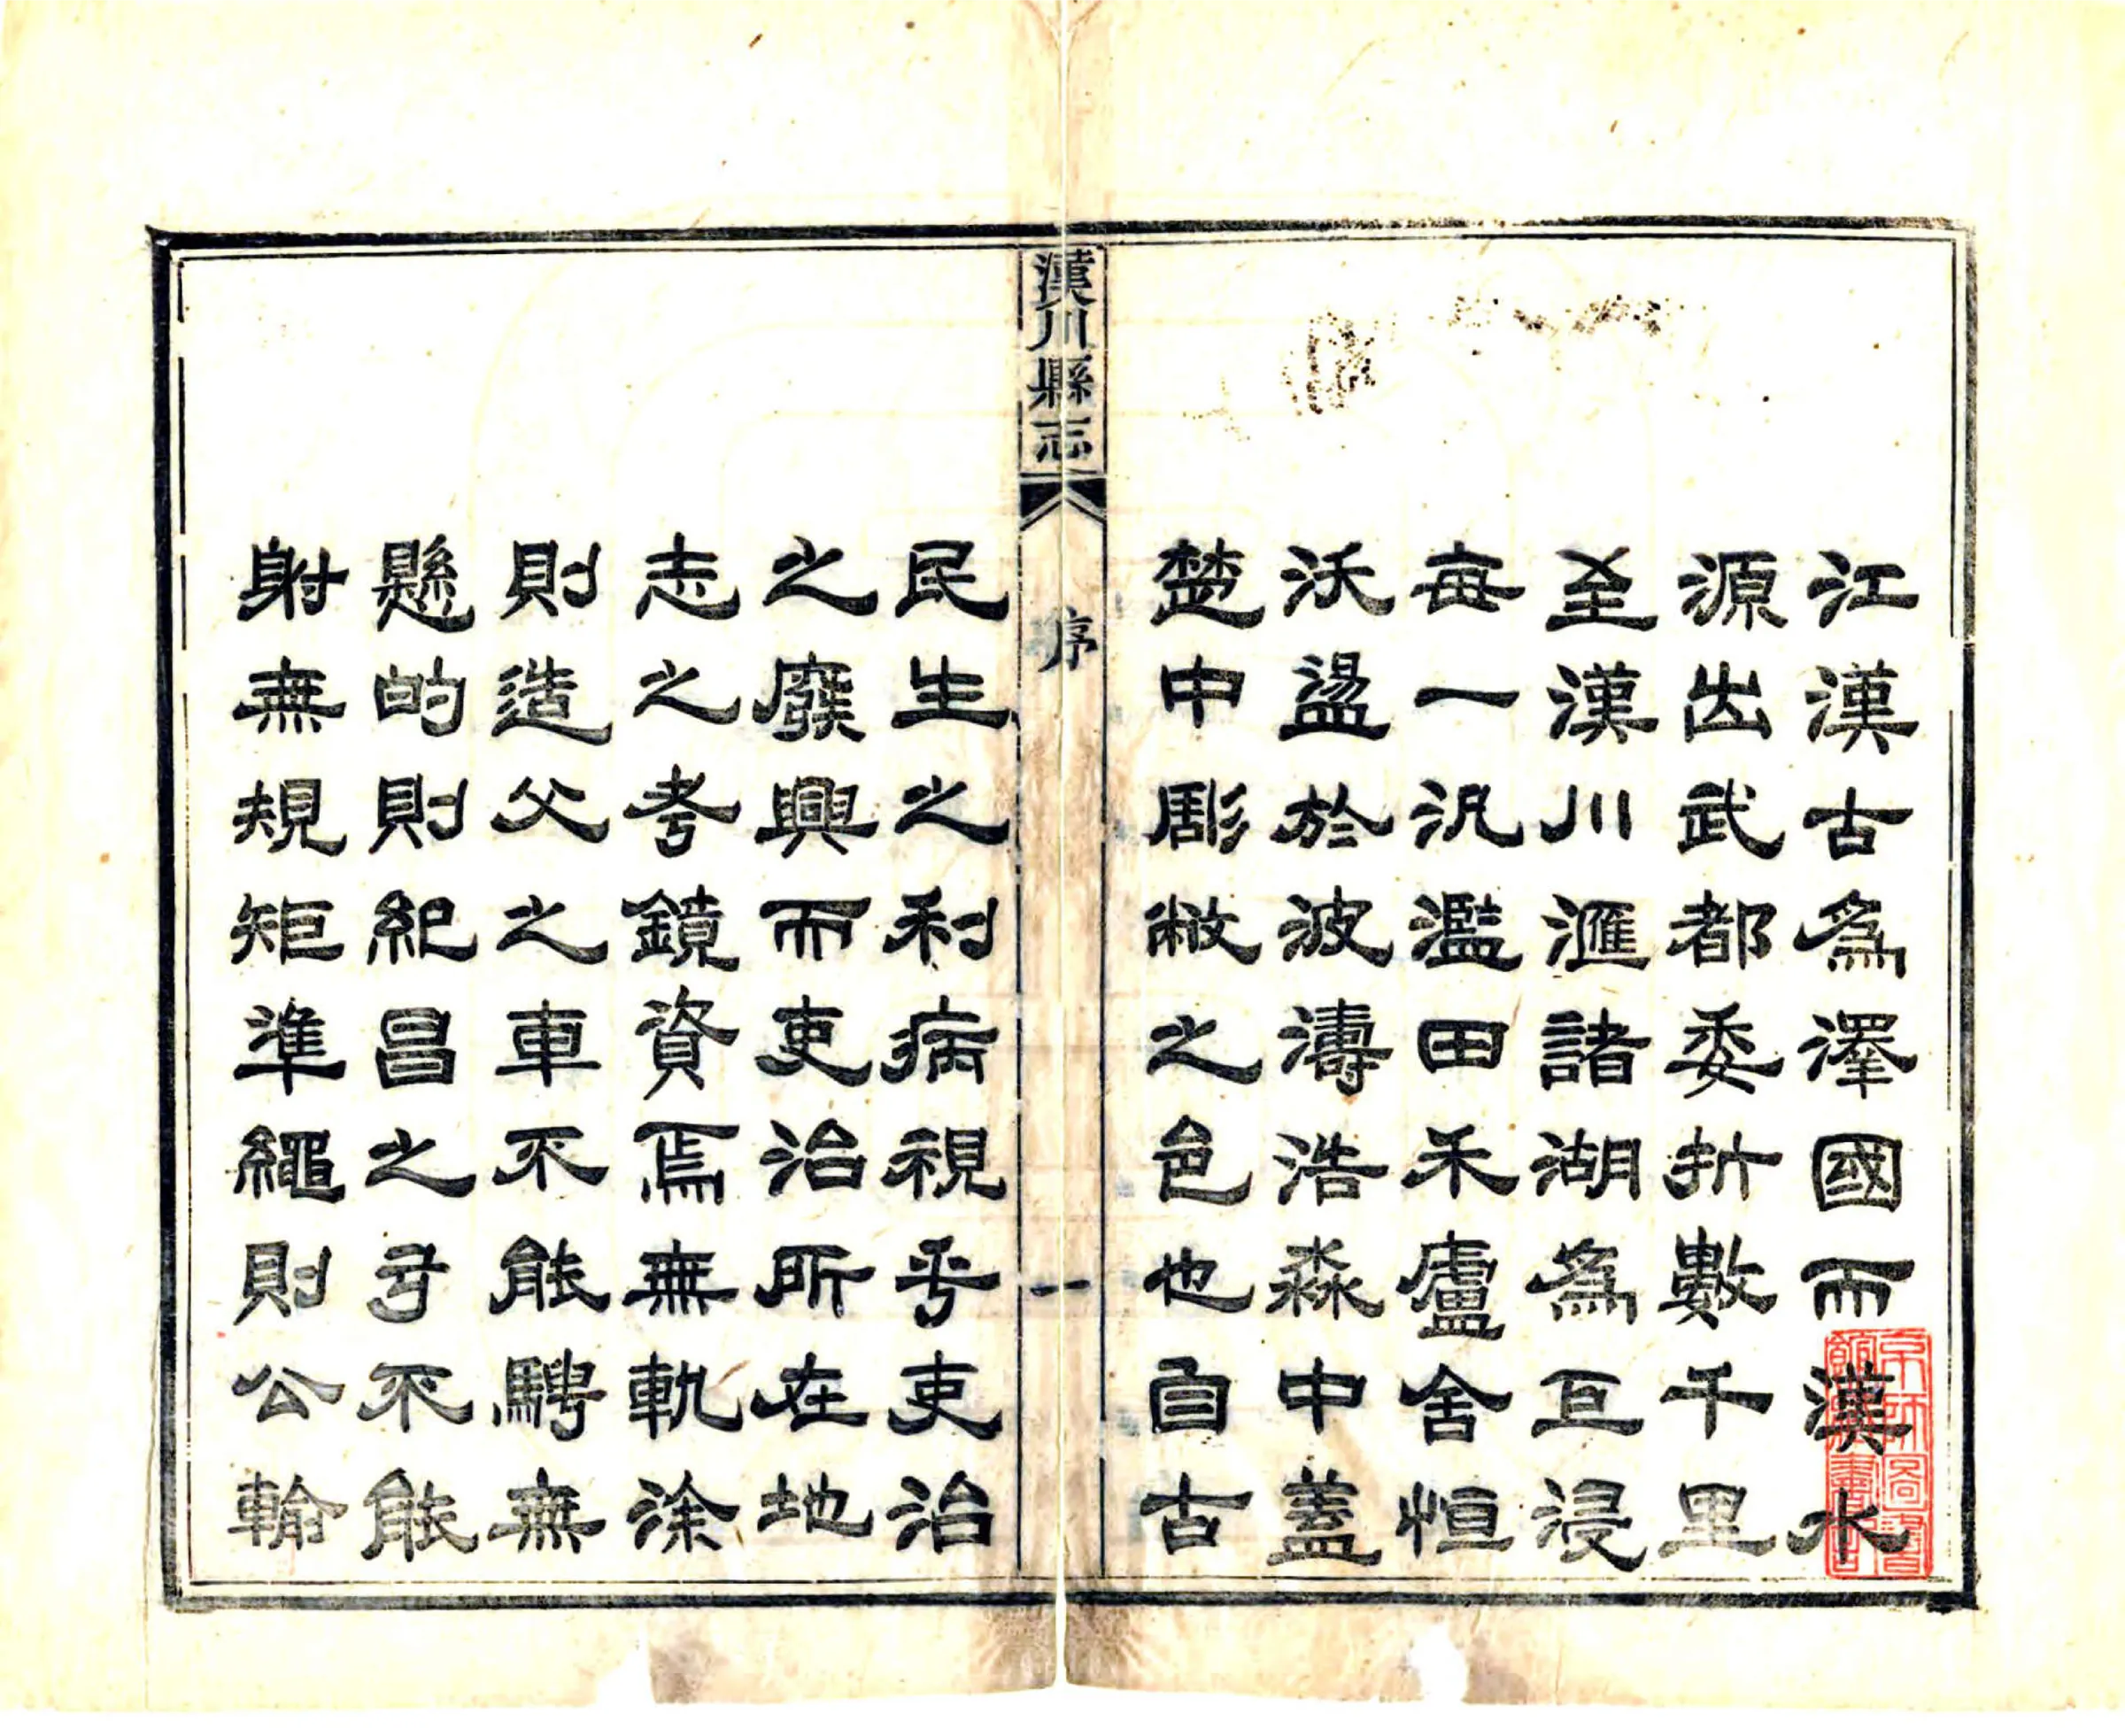 江漢古為澤國而漢水
源出武都委折數千里
至漢川滙諸湖為巨浸
每一汎濫田禾廬舍恒
沃盪於波濤浩淼中蓋
楚中彫敝之邑也自古
漢川縣志
序
一
民生之利病視乎吏治
之廢興而吏治所在地
志之考鏡資焉無軌涂
則造父之車不能騁無
懸的則紀昌之弓不能
射無規矩準繩則公輸
京師圖書
館藏書記